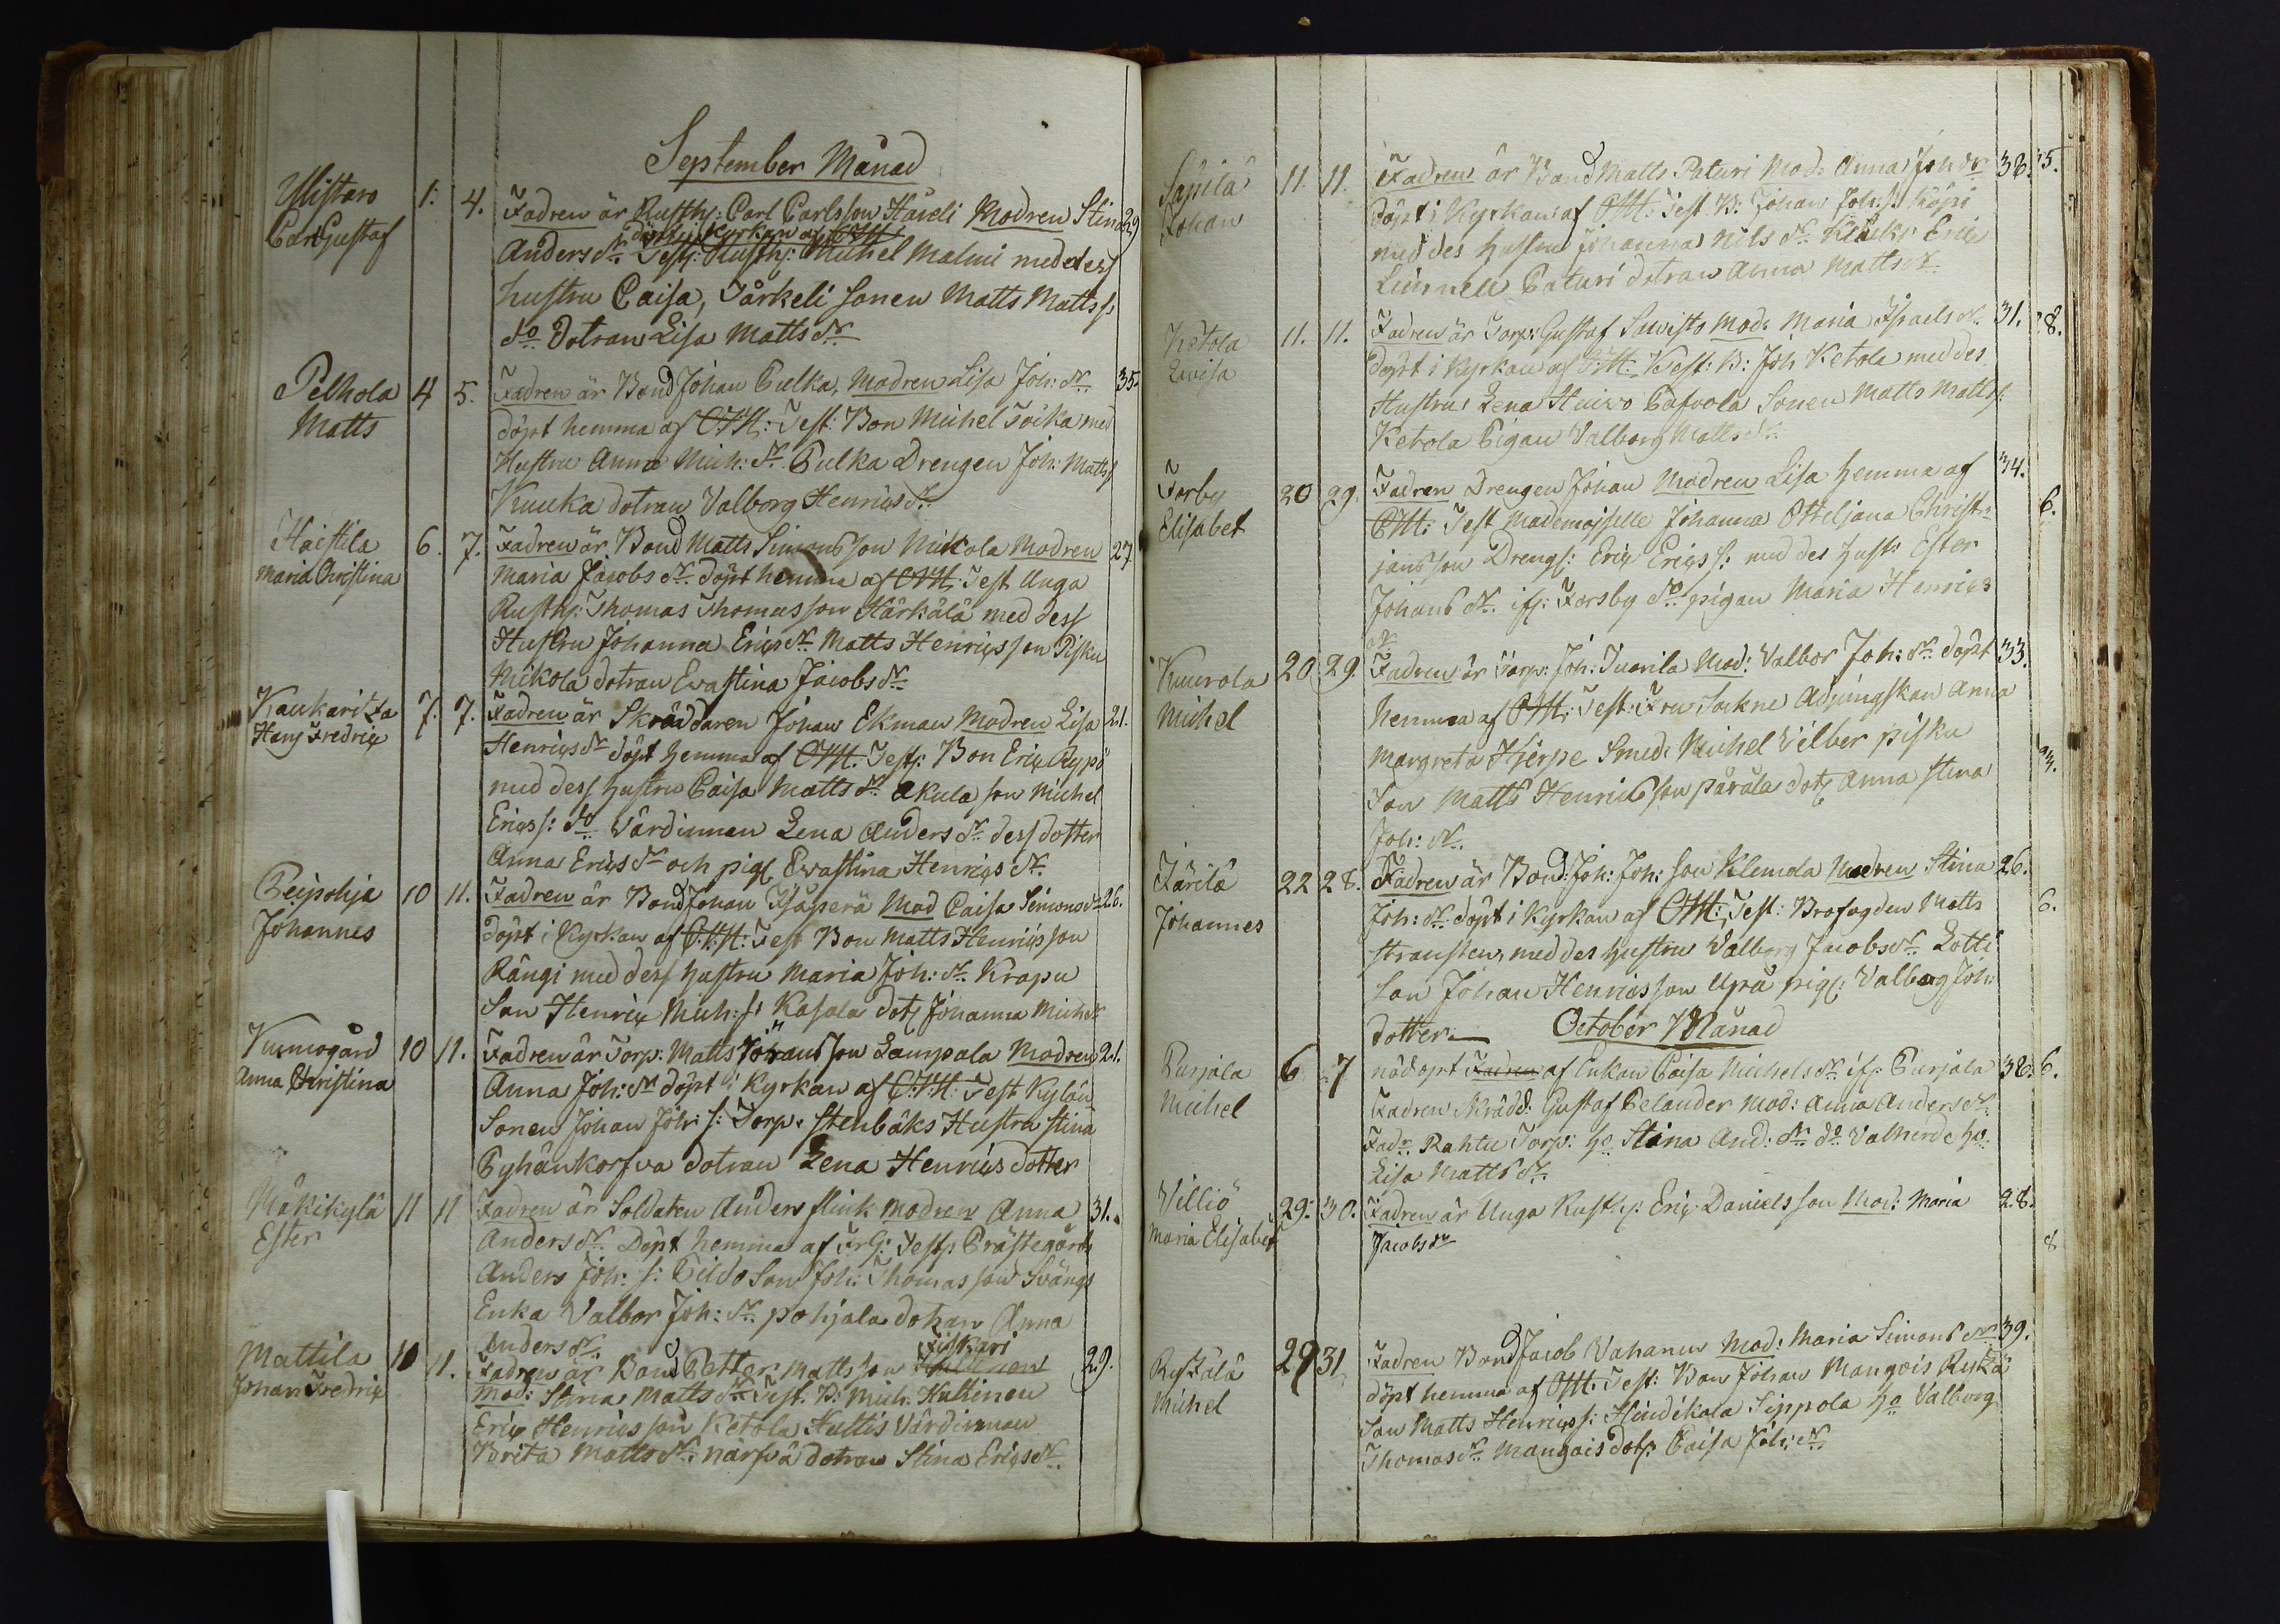 September Månad
Ylistaro 1: 4. Fadren är Rusth: Carl Carlsson Häveli Modren Stina 29
Carl Gustaf
döpt i Kyrkan af CHH:
Anders dr Test: Rusth: Michel Malmi med dess
hustru Caisa, Järkeli sonen Matts Matts s:
do Dotran Lisa Matts dr
Pelhola 4 5. Fadren är Bond Johan Pulka, Modren Lisa Joh: dr 35.
Matts döpt hemma af CHH: Test: Bon Michel Töika med
Hustru Anna Mich: dr Pulka Drengen Joh: Matts s
Kuuka dotran Valborg Henrics dr
Haistila 6. 7. Fadren är Bond Matts Simonsson Mikola Modren 27
Maria Christina Maria Jacobs dr döpt hemma af CHH: Test Unga
Rusth: Thomas Thomasson Härkälä med dess
Hustru Johanna Erics dr Matts Henricsson Pisku
Mikola dotran Evastina Jacobs dr
Kaukaritza 7. 7. Fadren är Skräddaren Johan Ekman Modren Lisa 21.
Hans Fredric Henrics dr döpt hemma af CHH: Test: Bon Eric Rypö
med dess hustru Caisa Matts dr Akula son Michel
Erics s: do Värdinnan Lena Anders dr dess dotter
Anna Erics dr och pig Evastina Henrics dr
Peipohja 10 11. Fadren är Bond Johan Isäperä Mod Caisa Simons dr 26.
Johannes döpt i Kyrkan af CHH: Test Bon Matts Henricsson
Rängi med dess hustru Maria Joh: dr Krapu
Son Henric Mich: s: Kasala dot Johanna Mich dr
Vumogård 10 11. Fadren är Torp: Matts Johansson Lampala Modren 21.
Anna Christina Anna Joh: dr döpt i Kyrkan af CHH: Test Kylän
Sonen Johan Joh: s: Torp: Stenbäks Hustru Stina
Pyhänkorfva dotran Lena Henrics dotter
Mäkikylä 11 11 Fadren är Soldaten Anders flink Modren Anna 31.
Ester Anders dr Döpt hemma af FrG: Test: Prästegårds
Anders Joh: s: Pildo Son Joh: Thomasson Svängs
Enka Valbor Joh: dr pohjala dotran Anna
Anders dr Filkari
Mattila 10 11. Fadren är Bond Petter Mattsson 29.
Johan Fredric Mod: Stina Matts dr Test. B: Mich: Huhtinen
Eric Henricsson Ketola Huttis Värdinnan
Brita Matts dr närfvä dotran Stina Erics dr
Säpilä 11. 11. Fadren är Bond Matts Paturi Mod: Anna Joh dr 38. 5.
Johan döpt i Kyrkan af CHH: Test B: Johan Joh: s: köpi
med des hustru Johanna Nils dr Eric
Paturi dotran Anna Matts dr
Ketola 11. 11. Fadren är Torp: Gustaf Suvisto Mod: Maria Israels dr 31. 8.
Lovisa döpt i Kyrkan af CHH: Test: B: Joh Ketola med des
Hustru Lena Huivo Pafvola Sonen Matts Matts s:
Ketola Pigan Valborg Matts dr
Forby 20 29. Fadren Drengen Johan Modren Lisa hemma af 34.
Elisabet CHH: Test Mademoiselle Johanna Otteljana Christ- 6.
jansson Drengs: Eric Erics s: med des hust: Ester
Johans dr ifs: Forsby do pigan Maria Henrics
dr
Kuurola 20 29. Fadren är Torp: Joh: Juurila Mod: Valbor Joh: dr döpt 33.
Michel hemma af CHH: Test: Fru Sockne Adjungskan Anna
Margreta Hjerpe Smed: Michel Vilber pisku
Son Matts Henricsson päräla dot Anna Stina
Joh: dr
Järilä 22 28. Fadren är Bond: Joh: Joh: son Klemola Modren Stina 26.
Johannes Joh: dr döpt i Kyrkan af CHH: Test: Brofogden Matts 6.
Stransten, med des hustru Valborg Jacobs dr Lotti
Son Johan Henricsson Upu pig: Valborg Joh:
dotter.
October Månad
Purjala 6 7 nöddöpt Fadren af Enkan Caisa Michels dr ifs: Purjala 38. 6.
Michel Fadren Skrädd: Gustaf Pelander Mod: Anna Anders dr
Fadr: Rahtu Torp: ho Stina And: dr do Valherde ho
Lisa Matts dr
Villiö 29. 30. Fadren är Unga Rusth: Eric Danielsson Mod: Maria 28.
Maria Elisabet Jacobs dr 8
Ruskala 29 31 Fadren Bond Jacob Vahanen Mod: Maria Simons dr 39.
Michel döpt hemma af CHH: Test: Bon Johan Mangois Ruskä
Son Matts Henrics s: Hindikala Sippola ho Valborg
Thomas dr Mangois dot: Caisa Joh: dr